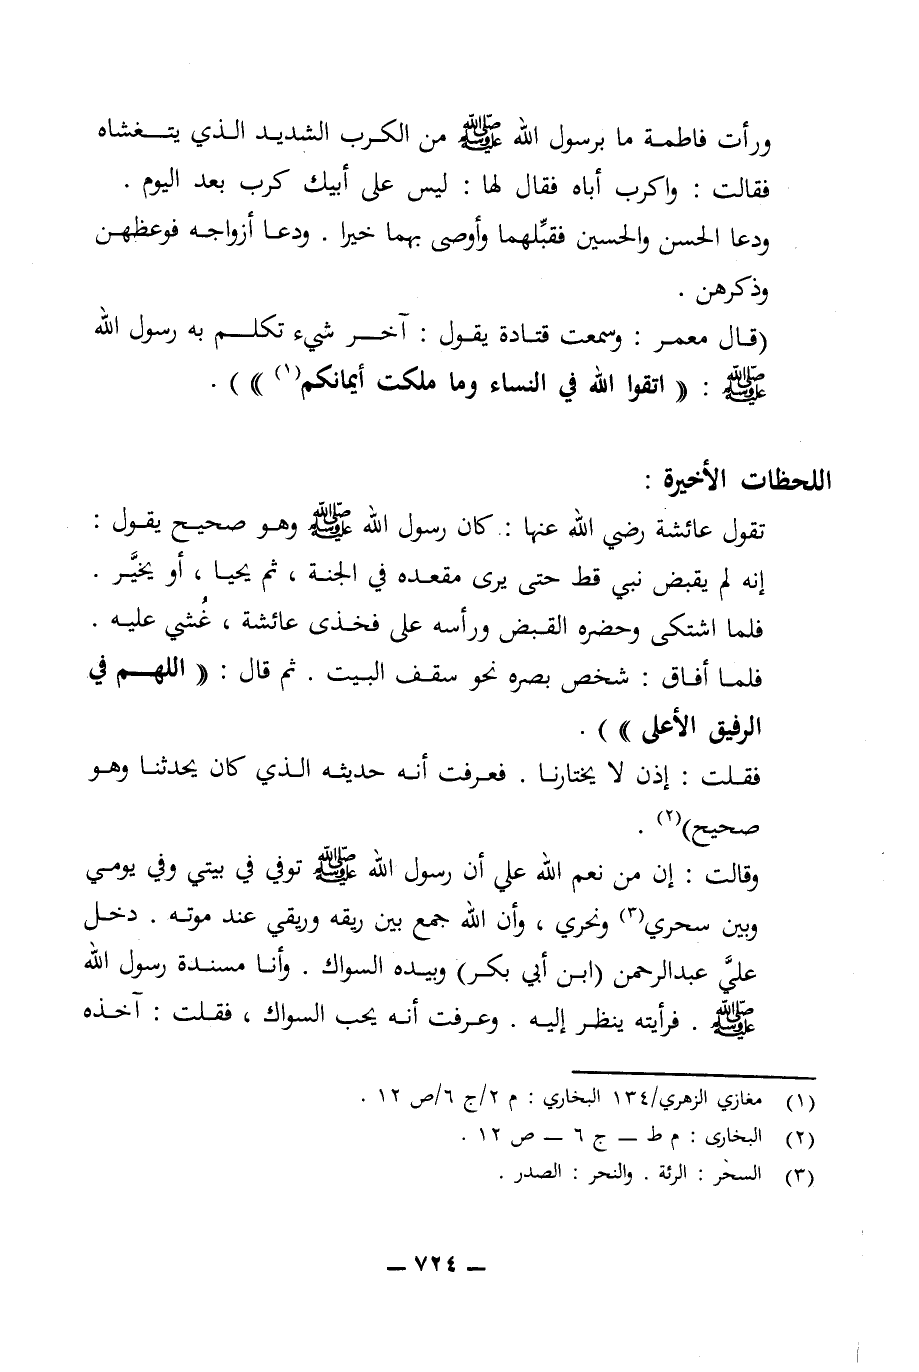 ورأت فاطمة ما برسول الله ﷺ من الكرب الشديد الذي يتغشاه
فقالت : واكرب أباه فقال لها : ليس على أبيك كرب بعد اليوم .
ودعا الحسن والحسين فقبِّلهما وأوصى بهما خيرا . ودعا أزواجه فوعظهن
وذكرهن .
(قال معمر : وسمعت قتادة يقول : آخر شيء تكلم به رسول الله
ﷺ : « اتقوا الله في النساء وما ملكت أيمانكم(١) » ) .
اللحظات الأخيرة :
تقول عائشة رضي الله عنها : كان رسول الله ﷺ وهو صحيح يقول :
إنه لم يقبض نبي قط حتى يرى مقعده في الجنة ، ثم يحيا ، أو يخيَّر .
فلما اشتكى وحضره القبض ورأسه على فخذى عائشة ، غُشي عليه .
فلما أفاق : شخص بصره نحو سقف البيت . ثم قال : « اللهم في
الرفيق الأعلى » ) .
فقلت : إذن لا يختارنا . فعرفت أنه حديثه الذي كان يحدثنا وهو
صحيح)(٢) .
وقالت : إن من نعم الله علي أن رسول الله ﷺ توفي في بيتي وفي يومي
وبين سحري(٣) ونحري ، وأن الله جمع بين ريقه وريقي عند موته . دخل
عليَّ عبدالرحمن (ابن أبي بكر) وبيده السواك . وأنا مسندة رسول الله
ﷺ . فرأيته ينظر إليه . وعرفت أنه يحب السواك ، فقلت : آخذه
(١) مغازي الزهري/١٣٤ البخاري : م ٢/ج ٦/ص ١٢ .
(٢) البخارى : م ط – ج ٦ – ص ١٢ .
(٣) السحْر : الرئة . والنحر : الصدر .
– ٧٢٤ –